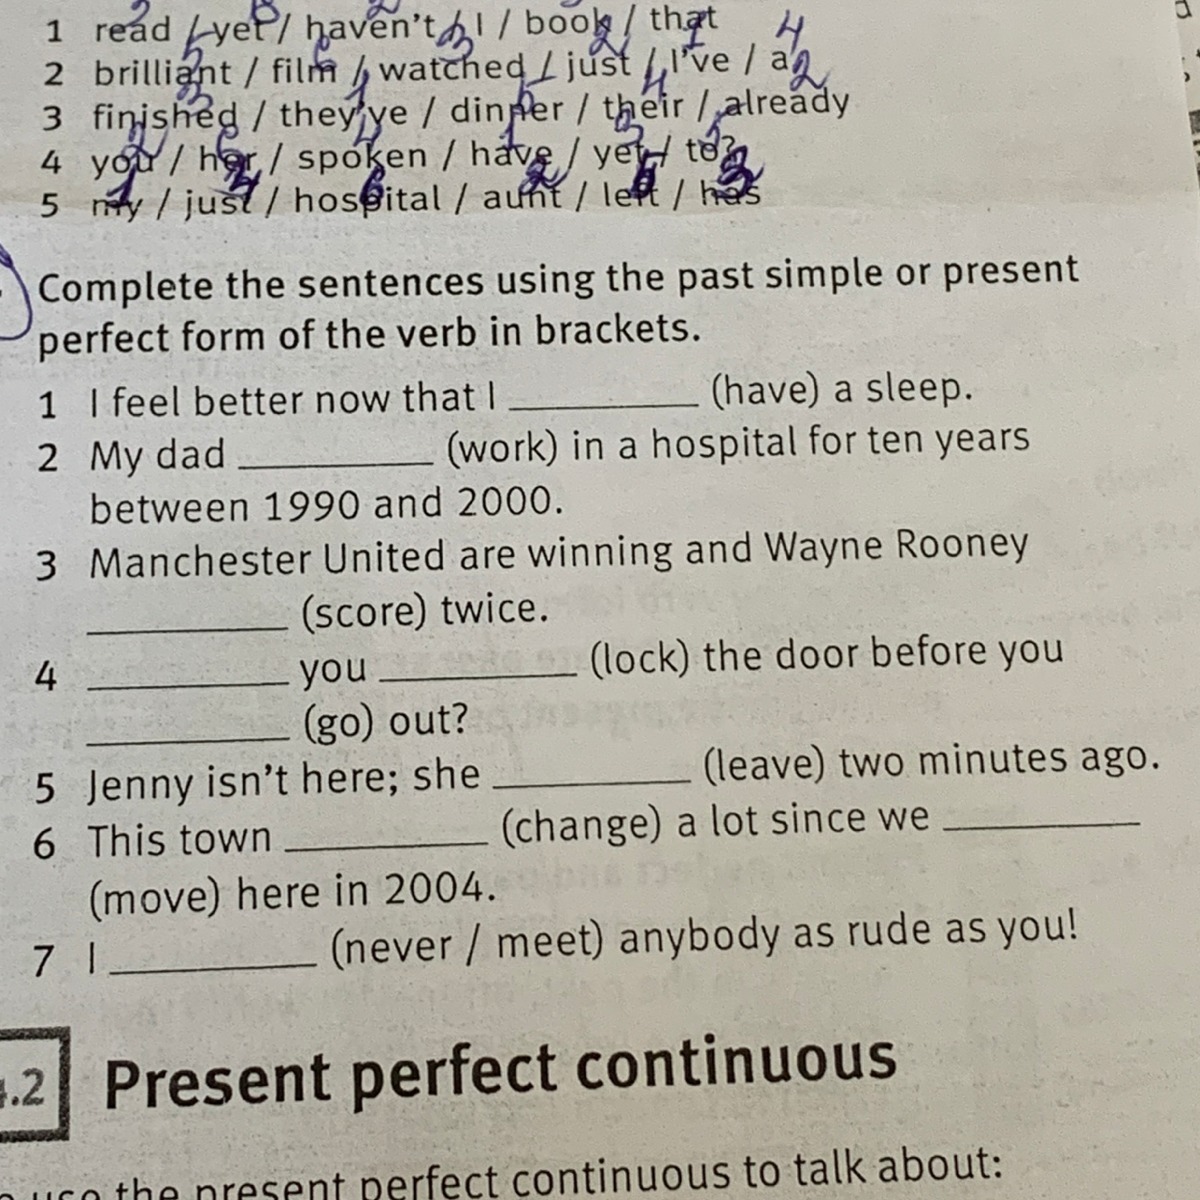 1 read / yet / haven't / I / book / that
2 brilliant / film / watched / just / I've / a
3 finished / they've / dinner / their / already
4 you / her / spoken / have / yet / to?
5 my / just / hospital / aunt / left / has
Complete the sentences using the past simple or present
perfect form of the verb in brackets.
1 I feel better now that I ________ (have) a sleep.
2 My dad ________ (work) in a hospital for ten years
between 1990 and 2000.
3 Manchester United are winning and Wayne Rooney
________ (score) twice.
4 ________ you ________ (lock) the door before you
________ (go) out?
5 Jenny isn't here; she ________ (leave) two minutes ago.
6 This town ________ (change) a lot since we ________
(move) here in 2004.
7 I ________ (never / meet) anybody as rude as you!
.2 Present perfect continuous
use the present perfect continuous to talk about: